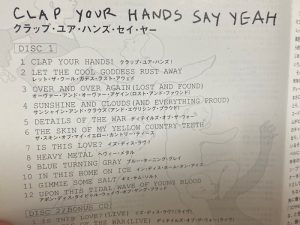 CLAP YOUR HANDS SAY YEAH
クラップ・ユア・ハンズ・セイ・ヤー
DISC 1
1 CLAP YOUR HANDS! クラップ・ユア・ハンズ!
2 LET THE COOL GODDESS RUST AWAY
レット・ザ・クール・ガデス・ラスト・アウェイ
3 OVER AND OVER AGAIN (LOST AND FOUND)
オーヴァー・アンド・オーヴァー・アゲイン(ロスト・アンド・ファウンド)
4 SUNSHINE AND CLOUDS (AND EVERYTHING PROUD)
サンシャイン・アンド・クラウズ(アンド・エヴリシング・プラウド)
5 DETAILS OF THE WAR ディテイルズ・オブ・ザ・ウォー
6 THE SKIN OF MY YELLOW COUNTRY TEETH
ザ・スキン・オブ・マイ・イエロー・カントリー・ティース
7 IS THIS LOVE? イズ・ディス・ラヴ?
8 HEAVY METAL ヘヴィー・メタル
9 BLUE TURNING GRAY ブルー・ターニング・グレイ
10 IN THIS HOME ON ICE イン・ディス・ホーム・オン・アイス
11 GIMMIE SOME SALT ギミ・サム・ソルト
12 UPON THIS TIDAL WAVE OF YOUNG BLOOD
アポン・ディス・タイダル・ウェイヴ・オブ・ヤング・ブラッド
DISC 2/BONUS CD
IS THIS LOVE? (LIVE)
THE WAR (LIVE)